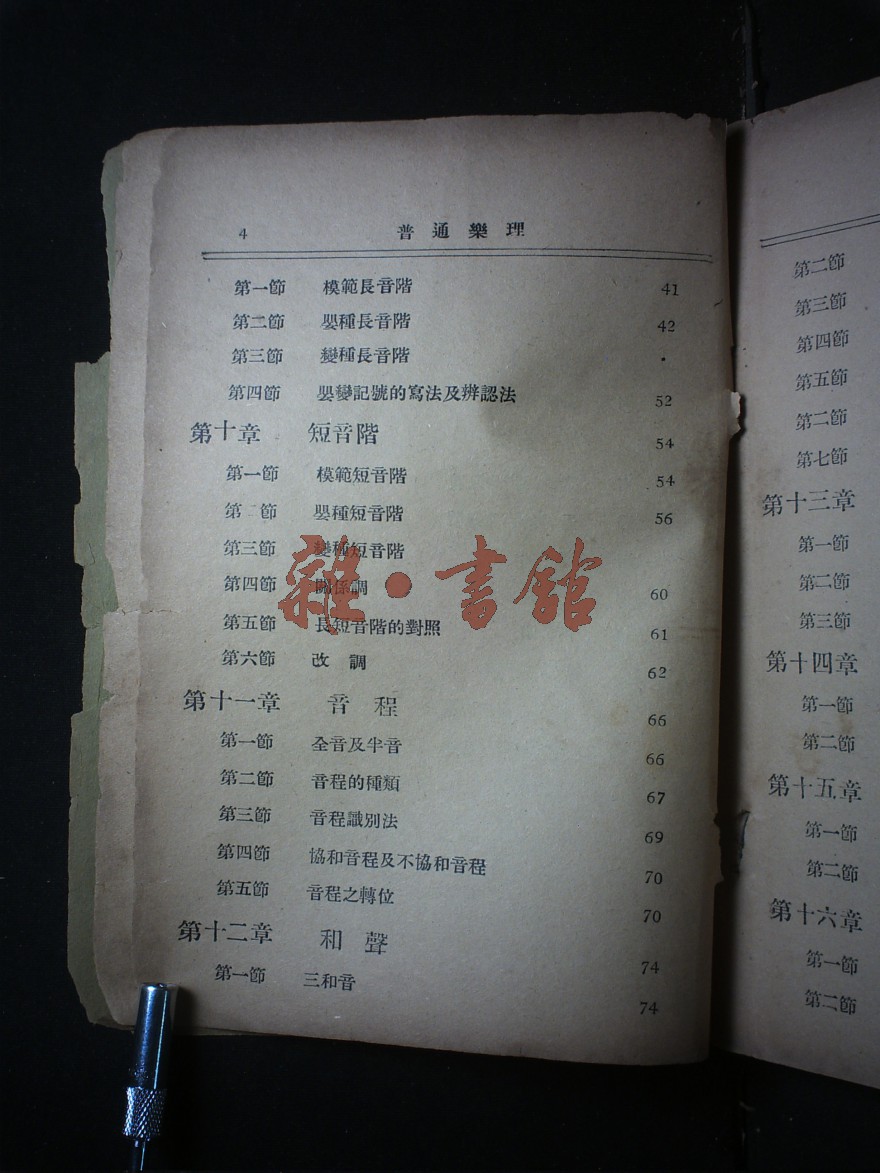 4 普通樂理
第一節 模範長音階 41
第二節 嬰種長音階 42
第三節 變種長音階
第四節 嬰變記號的寫法及辨認法 52
第十章 短音階 54
第一節 模範短音階 54
第二節 嬰種短音階 56
第三節 變種短音階
第四節 關係調 60
第五節 長短音階的對照 61
第六節 改調 62
第十一章 音程 66
第一節 全音及半音 66
第二節 音程的種類 67
第三節 音程識別法 69
第四節 協和音程及不協和音程 70
第五節 音程之轉位 70
第十二章 和聲 74
第一節 三和音 74
雜·書館
第二節
第三節
第四節
第五節
第二節
第七節
第十三章
第一節
第二節
第三節
第十四章
第一節
第二節
第十五章
第一節
第二節
第十六章
第一節
第二節